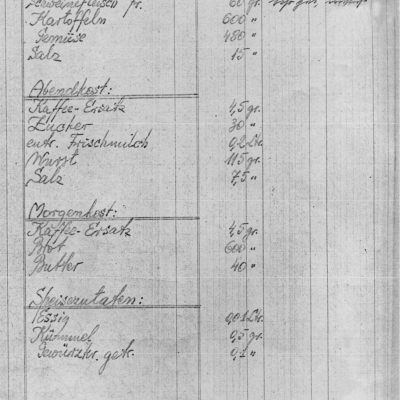 Schweinefleisch fr. 60 gr.
Kartoffeln 600 "
Gemüse 480 "
Salz 15 "
Abendkost:
Kaffee-Ersatz 4,5 gr.
Zucker 30 "
entr. Frischmilch 0,2 Ltr.
Wurst 115 gr.
Salz 7,5 "
Morgenkost:
Kaffee-Ersatz 4,5 gr.
Brot 600 "
Butter 40 "
Speisezutaten:
Essig 0,01 Ltr.
Kümmel 0,5 gr.
Gewürzkr. getr. 0,1 "